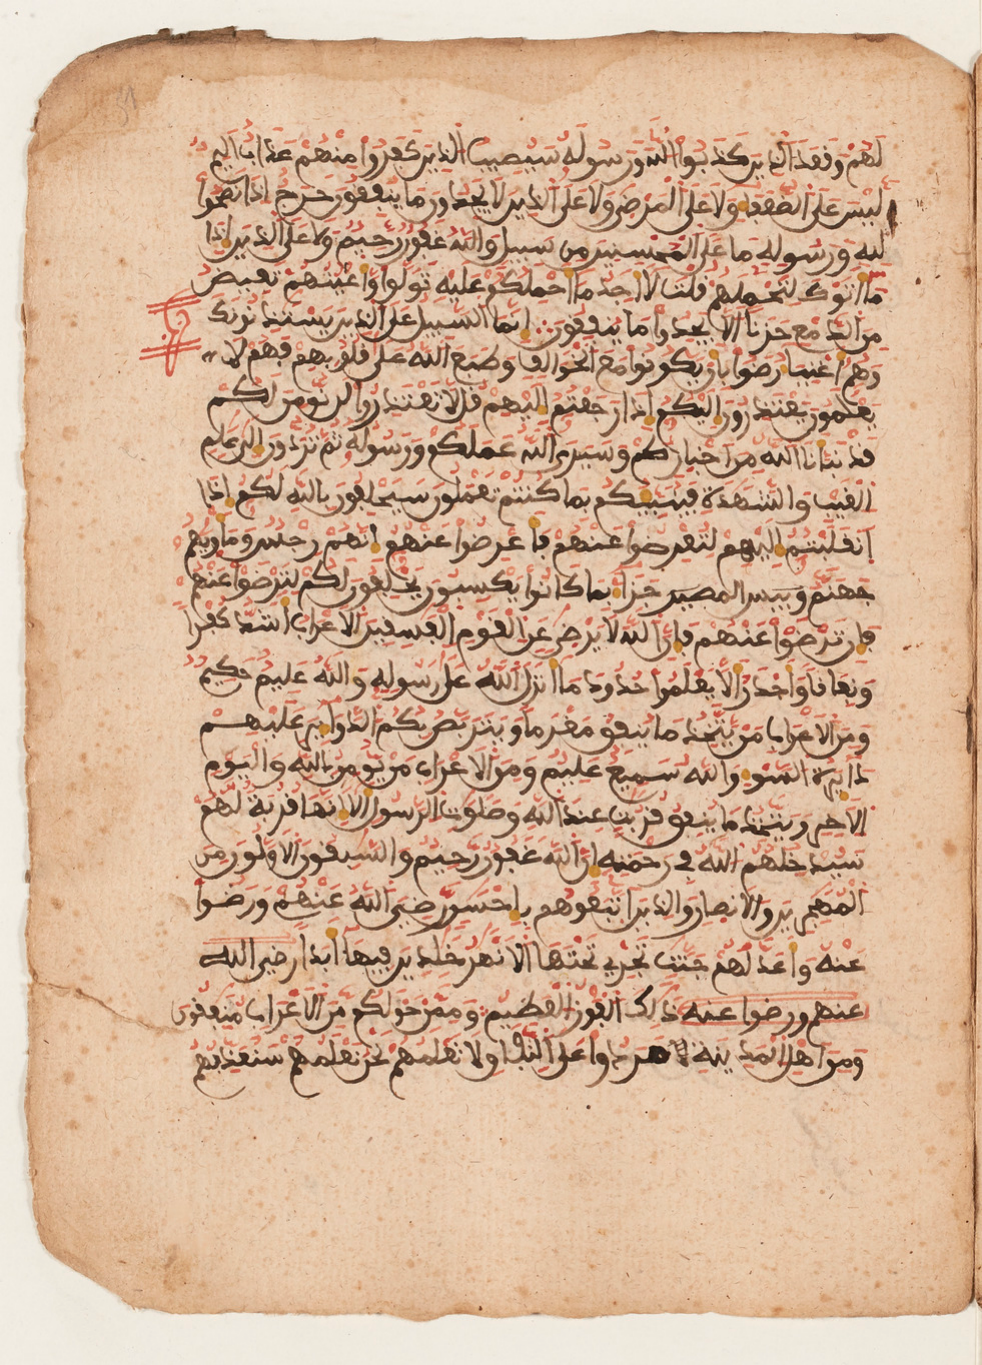 لهم وفعد الذين كذبوا الله ورسوله سيصيب الذين كفروا منهم عذاب اليم
ليس على الضعفا ولا على المرضى ولا على الذين لا يجدون ما ينفقون حرج اذا نصحوا
لله ورسوله ما على المحسنين من سبيل والله غفور رحيم ولا على الذين اذا
ما اتوك لتحملهم قلت لا اجد ما احملكم عليه تولوا واعينهم تفيض
من الدمع حزنا الا يجدوا ما ينفقون انما السبيل على الذين يستذنونك
وهم اغنيا رضوا بان يكونوا مع الخوالف وطبع الله على قلوبهم فهم لا
يعلمون يعتذرون اليكم اذا رجعتم اليهم قل لا تعتذروا لن نومن لكم
قد نبانا الله من اخباركم وسيرى الله عملكم ورسوله ثم تردون الى علم
الغيب والشهدة فينبيكم بما كنتم تعملون سيحلفون بالله لكم اذا
انقلبتم اليهم لتعرضوا عنهم فاعرضوا عنهم انهم رجس وماويهم
جهنم وبيس المصير جزا بما كانوا يكسبون يحلفون لكم لترضوا عنهم
فان ترضوا عنهم فان الله لا يرضى عن القوم الفسقين الاعراب اشد كفرا
ونفاقا واجدر الا يعلموا حدود ما انزل الله على رسوله والله عليم حكيم
ومن الاعراب من يتخذ ما ينفق مغرما ويتربص بكم الدواير عليهم
دايرة السو والله سميع عليم ومن الاعراب من يومن بالله واليوم
الاخر ويتخذ ما ينفق قربت عند الله وصلوت الرسول الا انها قربة لهم
سيدخلهم الله في رحمته ان الله غفور رحيم والسبقون الاولون من
المهجرين والانصار والذين اتبعوهم باحسن رضي الله عنهم ورضوا
عنه واعد لهم جنت تجري تحتها الانهر خلدين فيها ابدا رضي الله
عنهم ورضوا عنه ذلك الفوز العظيم وممن حولكم من الاعراب منفقون
ومن اهل المدينة مردوا على النفاق لا تعلمهم نحن نعلمهم سنعذبهم